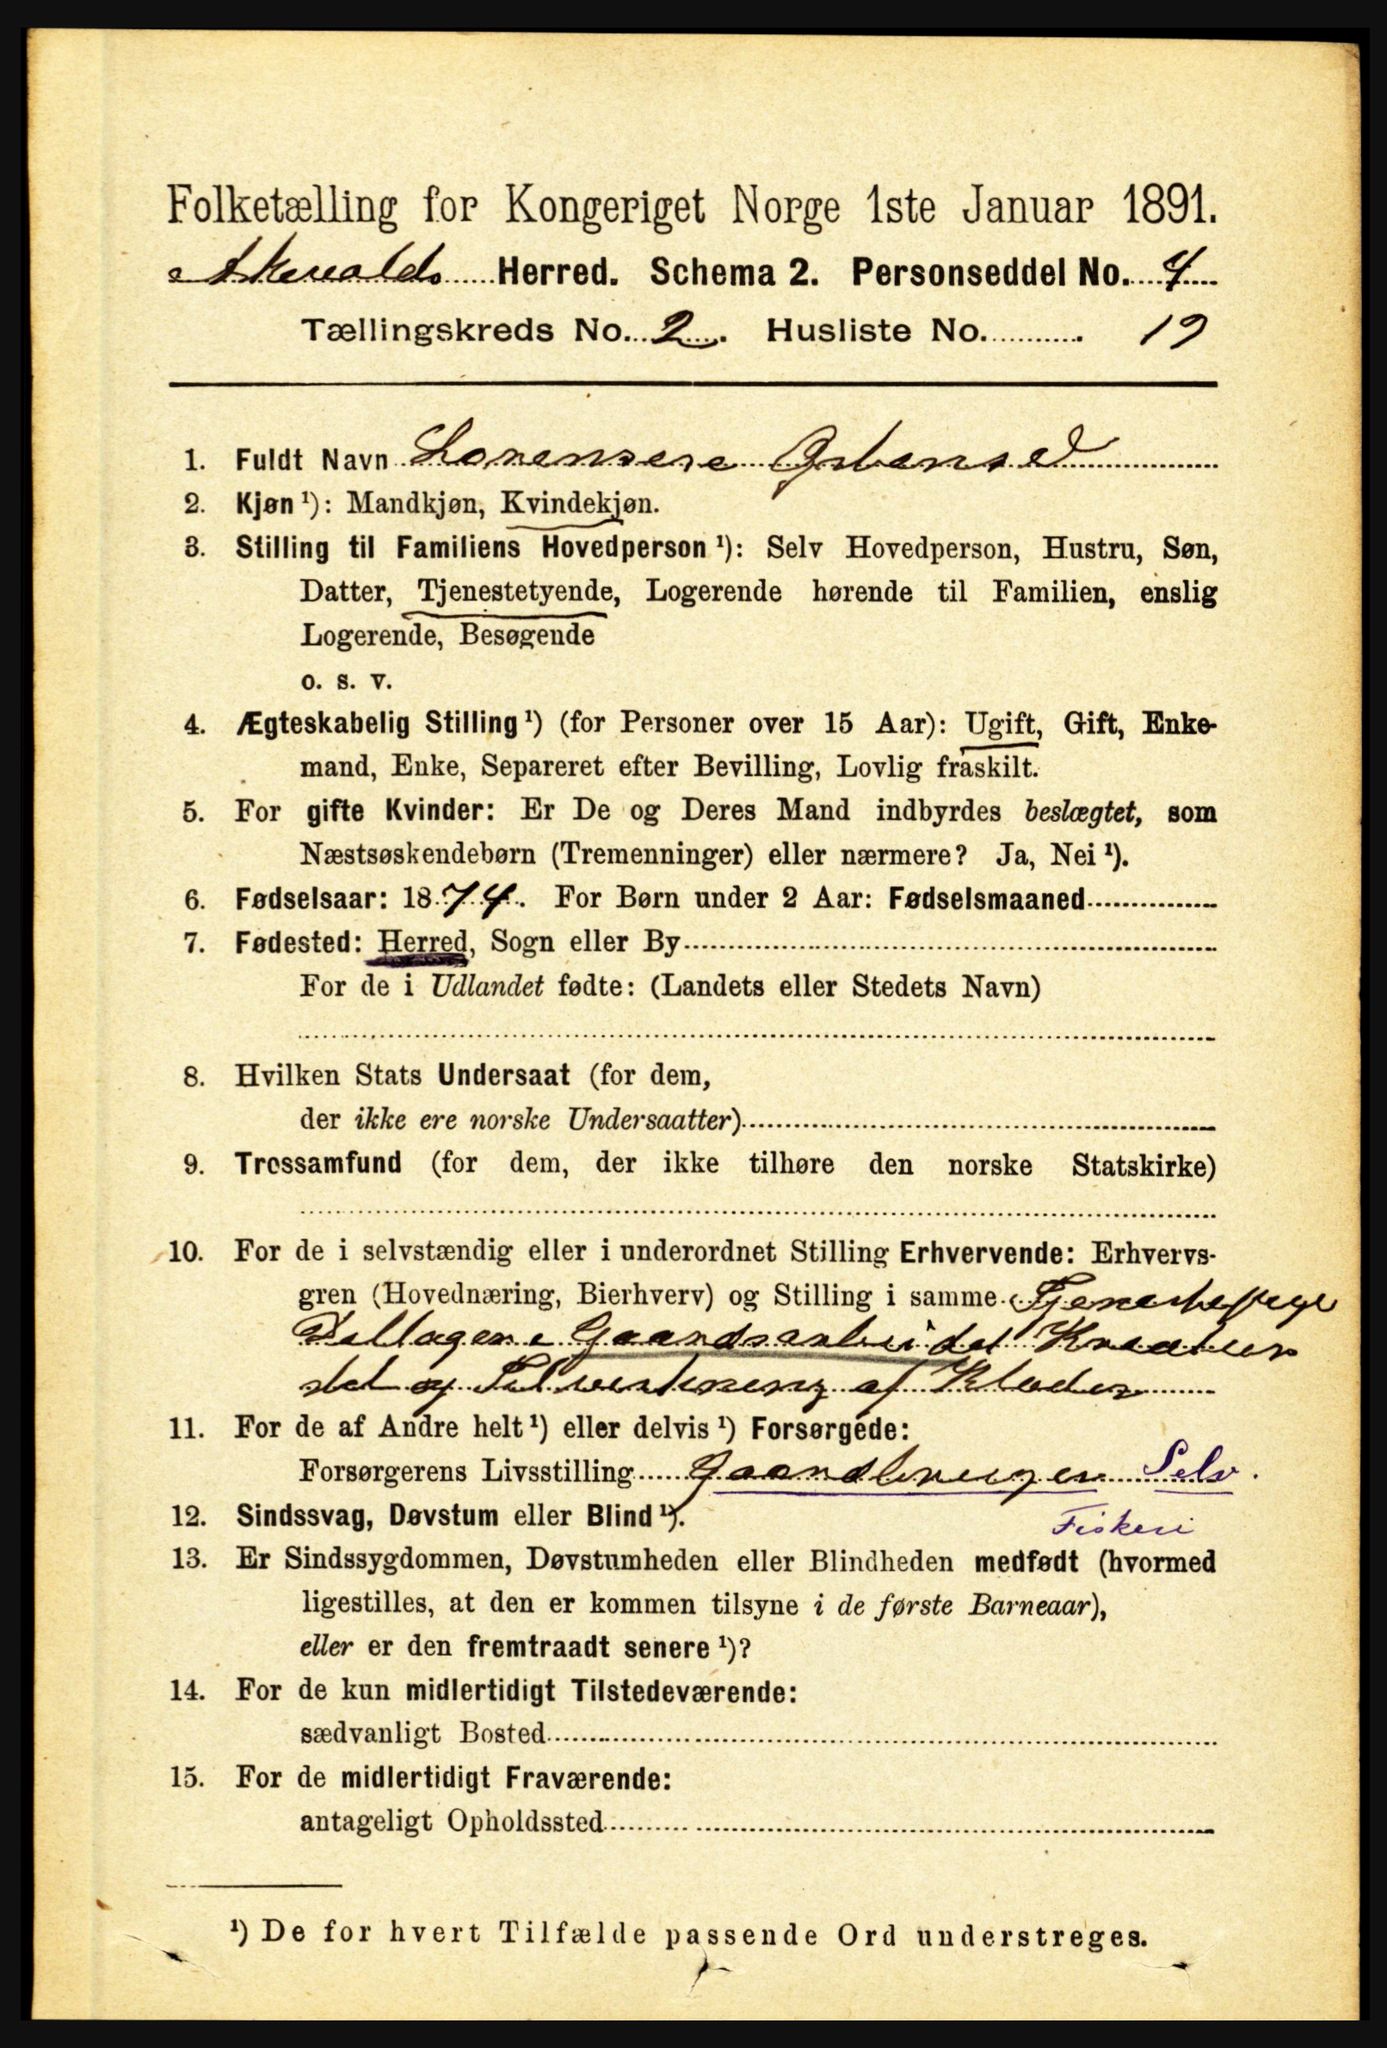 Folketælling for Kongeriget Norge 1ste Januar 1891.
Herred. Schema 2. Personseddel No. 4
Tællingskreds No. 2. Husliste No. 19
1. Fuldt Navn
2. Kjøn ¹): Mandkjøn, Kvindekjøn.
3. Stilling til Familiens Hovedperson ¹): Selv Hovedperson, Hustru, Søn,
Datter, Tjenestetyende, Logerende hørende til Familien, enslig
Logerende, Besøgende
o. s. v.
4. Ægteskabelig Stilling ¹) (for Personer over 15 Aar): Ugift, Gift, Enke-
mand, Enke, Separeret efter Bevilling, Lovlig fraskilt.
5. For gifte Kvinder: Er De og Deres Mand indbyrdes beslægtet, som
Næstsøskendebørn (Tremenninger) eller nærmere? Ja, Nei ¹).
6. Fødselsaar: 1874. For Børn under 2 Aar: Fødselsmaaned
7. Fødested: Herred, Sogn eller By
For de i Udlandet fødte: (Landets eller Stedets Navn)
8. Hvilken Stats Undersaat (for dem,
der ikke ere norske Undersaatter)
9. Trossamfund (for dem, der ikke tilhøre den norske Statskirke)
10. For de i selvstændig eller i underordnet Stilling Erhvervende: Erhvervs-
gren (Hovednæring, Bierhverv) og Stilling i samme Tjenestepige
Deltager i Gaardsarbeidet Kreatur
stel og Tilvirkning af Klæder
11. For de af Andre helt ¹) eller delvis ¹) Forsørgede:
Forsørgerens Livsstilling Gaardbruger Selv.
Fiskeri
12. Sindssvag, Døvstum eller Blind ¹).
13. Er Sindssygdommen, Døvstumheden eller Blindheden medfødt (hvormed
ligestilles, at den er kommen tilsyne i de første Barneaar),
eller er den fremtraadt senere ¹)?
14. For de kun midlertidigt Tilstedeværende:
sædvanligt Bosted
15. For de midlertidigt Fraværende:
antageligt Opholdssted
¹) De for hvert Tilfælde passende Ord understreges.